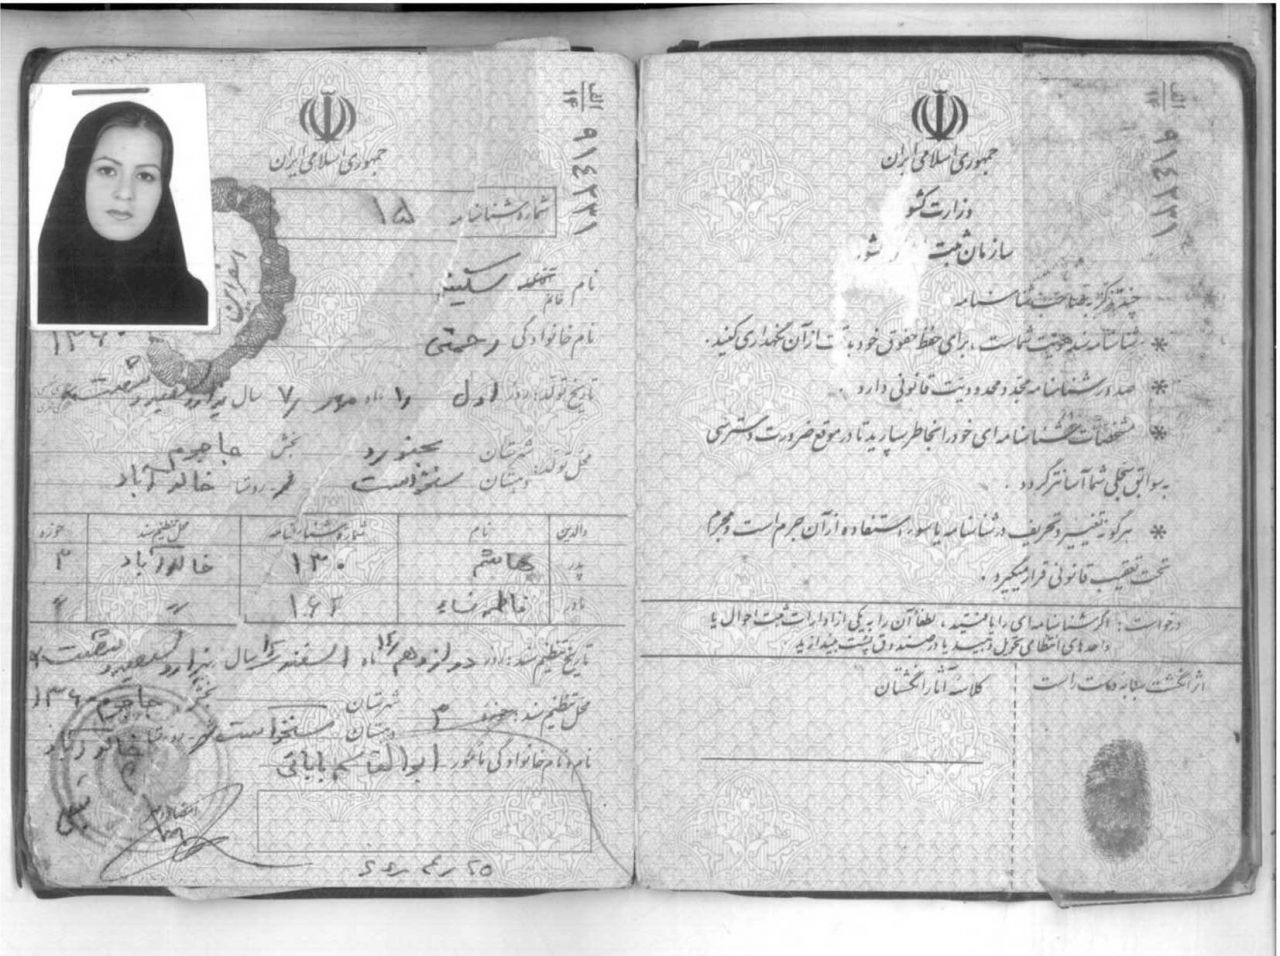 جمهوری اسلامی ایران
وزارت کشور
سازمان ثبت
الف
۱۴
۹۱۴۲۳۱
چند تذکر به صاحب شناسنامه
* شناسنامه سند هویت شماست، برای حفظ حقوق خود از آن نگهداری کنید.
* صدور شناسنامه مجدد محدودیت قانونی دارد.
* مشخصات شناسنامه ای خود را بخاطر بسپارید تا در موقع ضرورت دسترسی
به سوابق سجلی شما آسانتر گردد.
* هرگونه تغییر و تحریف در شناسنامه یا سوء استفاده از آن جرم است و مجرم
تحت تعقیب قانونی قرار میگیرد.
درخواست: اگر شناسنامه ای را یافتید، لطفاً آن را به یکی از ادارات ثبت احوال یا
واحدهای انتظامی تحویل دهید یا در صندوق پست بیندازید
اثر انگشت سبابه دست راست
کلاسه آثار انگشتان
جمهوری اسلامی ایران
الف
۱۴
۹۱۴۲۳۱
شماره شناسنامه ۱۵
اسفراین
نام سکینه
نام خانوادگی رحمتی
تاریخ تولد: روز اول ۱ ماه مهر ۷ سال
محل تولد: شهرستان بجنورد بخش جاجرم
دهستان سنخواست روستا خالدآباد
والدین نام شماره شناسنامه محل تنظیم سند حوزه
پدر هاشم ۱۳۰ خالدآباد ۳
مادر فاطمه نساء ۱۶۲ 〃 〃
تاریخ تنظیم سند: روز دوازدهم ۱۲ ماه اسفند ۱۲ سال
۱۳۶۰
محل تنظیم سند: حوزه ۳ شهرستان جاجرم
دهستان سنخواست
نام و نام خانوادگی مأمور ابوالقاسم بابائی